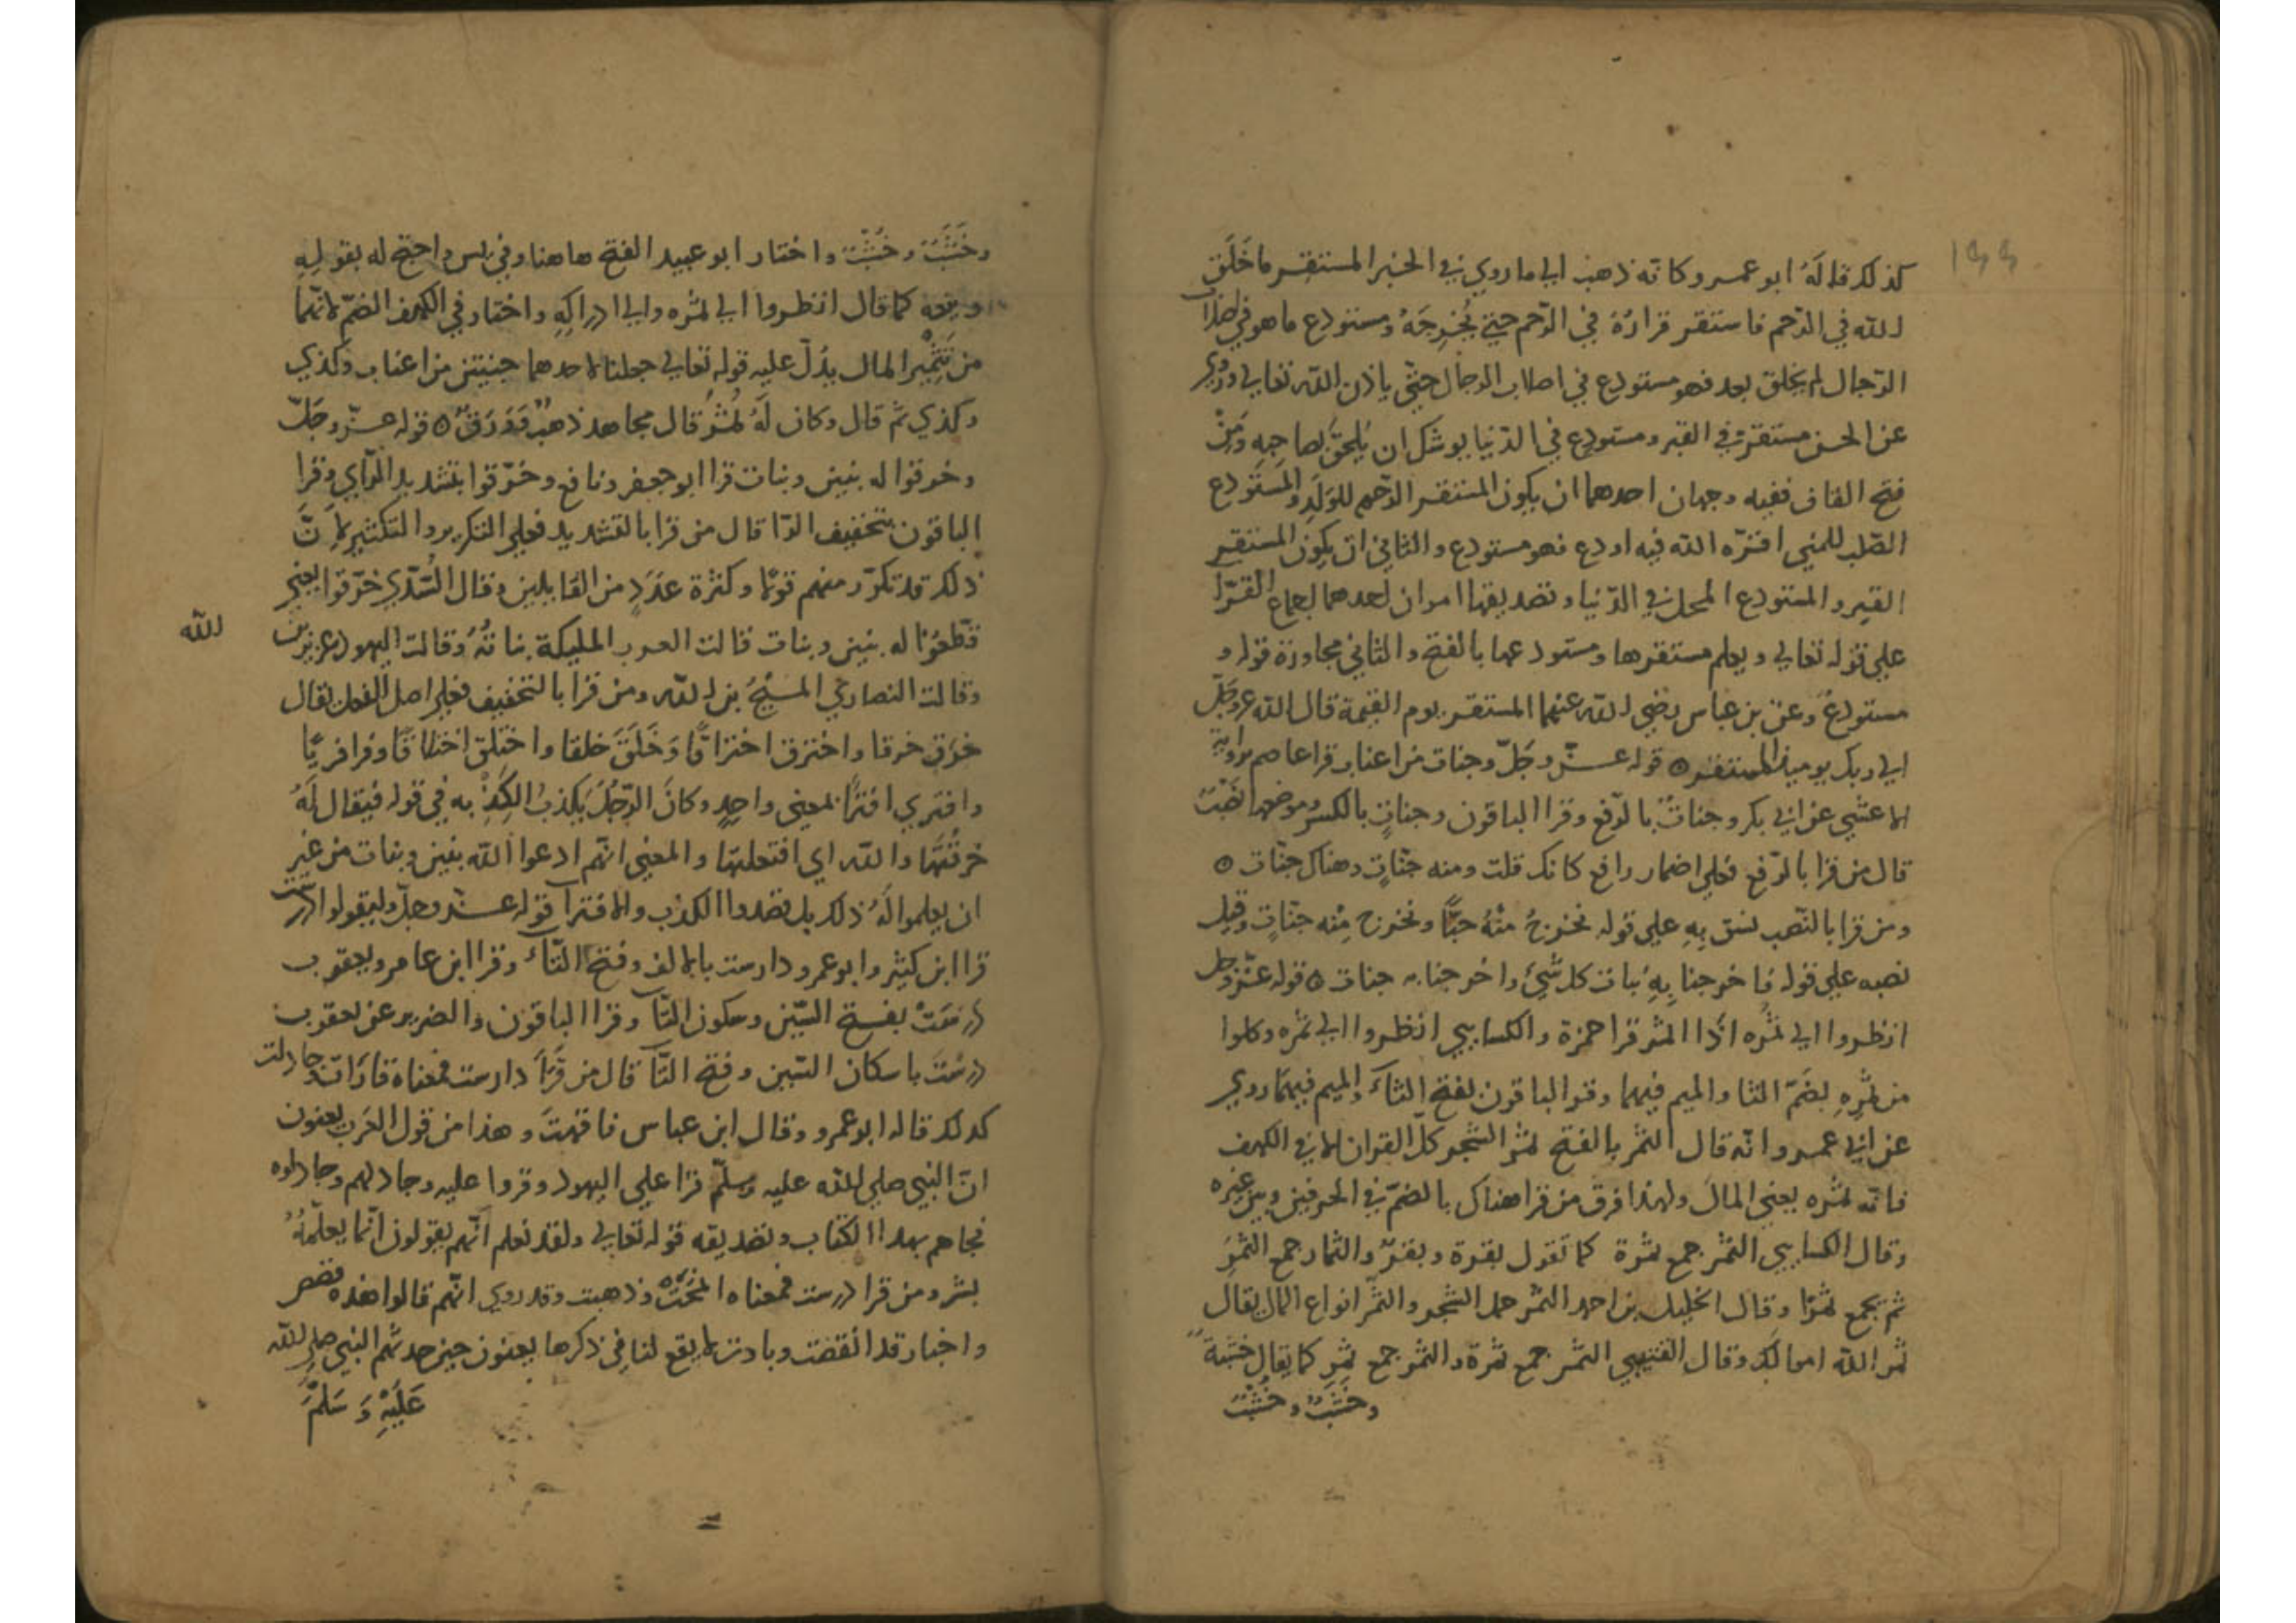 ١٤٤
كذلك قاله ابو عمرو وكانه ذهب الي ما روي في الخبر المستقر ما خَلَق
الله في الرّحم فاستقر قراره في الرّحم حتي يُخرِجَهُ ومستودع ما هو في اصلاب
الرّجال لم يخلق بعد فهو مستودع في اصلاب الرجال حتّي ياذن الله تعالي وروي
عن الحسن مستقر في القبر ومستودع في الدّنيا يوشك ان يَلحَقَ بصاحِبِهِ ومَنْ
فتح القاف ففيه وجهان احدهما ان يكون المستقر الرّحم للوَلَدِ والمستَودع
الصّلب للمني اقرّه الله فيه اودع فهو مستودع والثاني ان يكون المستقر
القبر والمستودع المحل في الدّنيا وتصديقها امران احدهما اجماع القرّا
علي قوله تعالي ويعلم مستقرها ومستودعها بالفتح والثاني مجاورة قوله و
مستودعٌ وعن بن عباس رضي الله عنهما المستقر يوم القيمة قال الله عزوجلّ
الي ربك يوميذ المستقر ۞ قوله عـزّ وجَلّ وجنات من اعناب قرا عاصم برواية
الاعشي عن ابي بكر وجناتٌ بالرّفع وقرا الباقون وجناتٍ بالكسر وموضعها نصْبٌ
قال من قرا بالرّفع فعلي اضمار رافع كانك قلت ومنه جنّاتٍ وهناك جنّات ۞
ومن قرا بالنّصب نسق بِهِ علي قوله نخرجُ منْهُ حبًّا ونخرج مِنْه جنّاتٍ وقيل
نصبه علي قوله فاخرجنا بِهِ نبات كل شيْءٍ واخرجنا به جنات ۞ قوله عزّوجل
انظروا الي ثمُره اذا اثمر قرا حمزة والكسايي انظروا الي ثمره وكلوا
من ثمُرِهِ بضَمّ الثا والميم فيهما وقرا الباقون بفتح الثآءِ والميم فيهمَا روي
عن ابي عمرو انّه قال الثّمر بالفتح ثمر الشّجر كلّ القران الا في الكهف
فانّه ثمره يعني المال ولهذا فرق من قرا هناك بالضّمّ في الحرفين وبين غيره
وقال الكسايي الثمَر جمع ثمَرة كما تقول بقرة وبقرٌ والثمار جمع الثمَرِ
ثم يجمع ثمُرًا وقال الخليل بن احمد الثمَر حمل الشّجر والثمُر انواع المال يقال
ثمر الله اموالك وقال القتيبي الثمَر جمع ثمرة والثمُر جمع ثمرٍ كما يقال خشَبَةٌ
وخَشَبٌ وخُشُبٌ
وخَشَبٌ وخُشُبٌ واختار ابو عبيد الفتح هاهنا وفي يس واحتج له بقولِهِ
وينعه كما قال انظروا الي ثمره والي ادراكِهِ واختار في الكهف الضمّ لانّها
من تَثْمِيرِ المال يدُلّ عليه قوله تعالي جعلنا لاحدهما جنتين من اعناب وكذي
وكذي ثمّ قال وكان لَهُ ثمُرٌ قال مجاهد ذهبٌ ووَرَقٌ ۞ قوله عـزّ وجَلّ
وخرقوا له بنين وبنات قرا ابو جعفر ونافع وخرّقوا بتشديد الرّاي وقرا
الباقون بتخفيف الرّا قال من قرا بالتشديد فعلي التكرير والتكثير لاِنّ
ذلك قد تكرّر منهم قوْلًا وكثْرة عدَدٍ من القايلين وقال السُّدّي خرّقوا يعني
قطعُوا له بنين وبنات قالت العرب المليكة بناتُهُ وقالت اليهود عزير بن
الله
وقالت النصاري المسيْحُ بن الله ومن قرا بالتخفيف فعلي اصل الفعل يقال
خرَق خرقا واخترق اختراقًا وَخَلَقَ خلقا واختلق اختلاقًا وفرا فريًا
وافتري افترًا بمعني واحدٍ وكانَ الرّجُلُ يكذبُ الكَذِبْ به في قوله فيقال لَهُ
خرقتَها والله اي افتعلتها والمعني انّهم ادعوا لله بنين وبنات من غير
ان يعلموا لَهُ ذلك بل قصدوا الكذب والافترا قوله عـزّ وجلّ وليقولوا درست
قرا ابن كثير وابو عمرو دارست بالالف وفتح التّآءَ وقرا ابن عامر ويعقوب
درسَتْ بفتح السّين وسكون التّا وقرا الباقون والضرير عن يعقوب
درسْتَ باسكان السّين وفتح التّا قال من قرَاَ دارست فمعناه قارَاْتَ وجادلت
كذلك قاله ابو عمرو وقال ابن عباس فاقهتَ وهذا من قول العَرب يعنون
انّ النبي صلي الله عليه وسلّم قرا علي اليهود وقروا عليه وجادلهم وجادلوه
فجاهم بهذا الكتاب وتصديقه قوله تعالي ولقد نعلم انّهم يقولون انّما يعلّمهُ
بشر ومن قرا درست فمعناه امّحَتْ وذهبت وقد روي انّهم قالوا هذه قصص
واخبار قد انقضت وبادت لا يقع لنا في ذكرها يعنون حين حدثهم النبي صلي الله
عَلَيْهِ وَسَلَّمَ